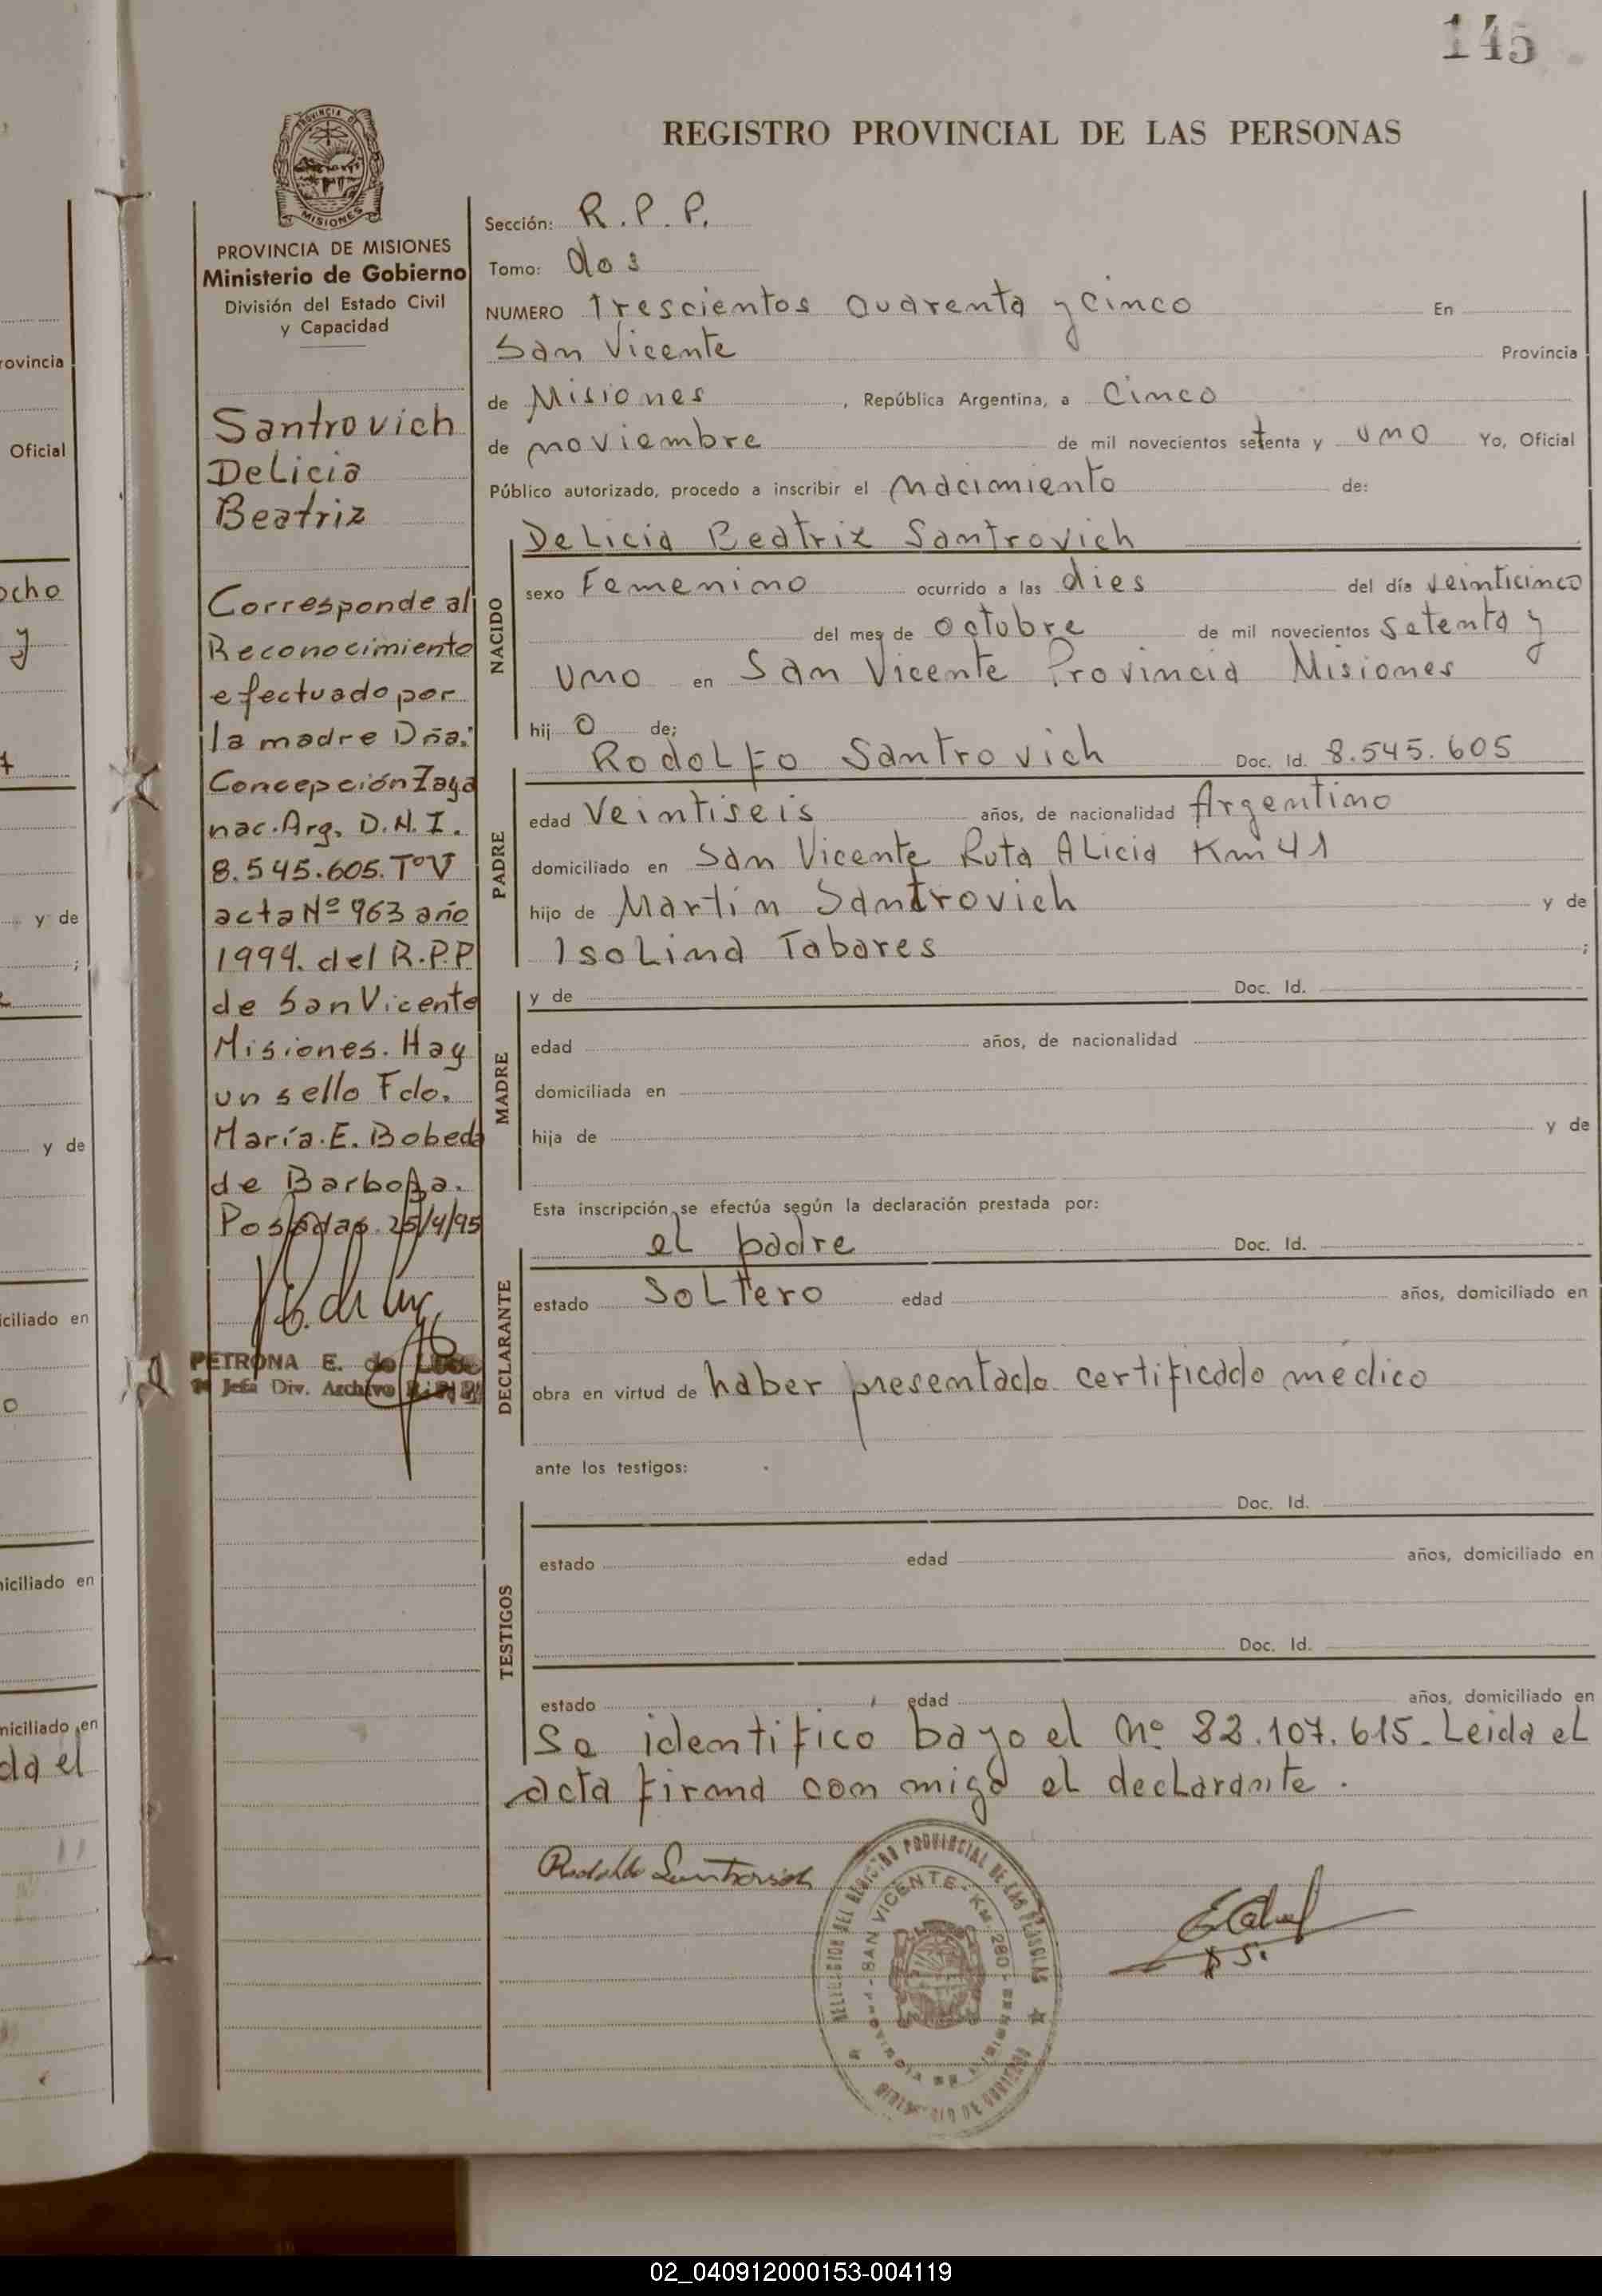 145
REGISTRO PROVINCIAL DE LAS PERSONAS
PROVINCIA DE MISIONES
Ministerio de Gobierno
División del Estado Civil
y Capacidad
Santrovich
Delicia
Beatriz
Corresponde al
Reconocimiento
efectuado por
la madre Dña.
Concepción Zaya
nac. Arg. D.N.I.
8.545.605. TºV
acta Nº 963 año
1994. del R.P.P
de San Vicente
Misiones. Hay
un sello Fdo.
María. E. Bobeda
de Barboza.
Posadas 25/4/95
PETRONA E. de
Jefa Div. Archivo
Sección: R. P. P.
Tomo: dos
NUMERO Trescientos Cuarenta y Cinco En
San Vicente Provincia
de Misiones, República Argentina, a Cinco
de noviembre de mil novecientos setenta y uno Yo, Oficial
Público autorizado, procedo a inscribir el nacimiento de:
NACIDO
Delicia Beatriz Santrovich
sexo Femenino ocurrido a las dies del día veinticinco
del mes de octubre de mil novecientos setenta y
uno en San Vicente Provincia Misiones
hijo de;
PADRE
Rodolfo Santrovich Doc. Id. 8.545.605
edad Veintiseis años, de nacionalidad Argentino
domiciliado en San Vicente Ruta Alicia Km 41
hijo de Martin Santrovich y de
Isolina Tabares ;
MADRE
y de Doc. Id.
edad años, de nacionalidad
domiciliada en
hija de y de
Esta inscripción se efectúa según la declaración prestada por:
DECLARANTE
el padre Doc. Id.
estado Soltero edad años, domiciliado en
obra en virtud de haber presentado certificado médico
ante los testigos:
TESTIGOS
Doc. Id.
estado edad años, domiciliado en
Doc. Id.
estado edad años, domiciliado en
Se identificó bajo el Nº 22.107.615. Leida el
acta firma con migo el declarante.
Rodolfo Santrovich
DELEGACION DEL REGISTRO PROVINCIAL DE LAS PERSONAS
SAN VICENTE - KM. 280
rovincia
Oficial
ocho
y
y de
;
y de
iciliado en
o
niciliado en
niciliado en
da el
02_040912000153-004119